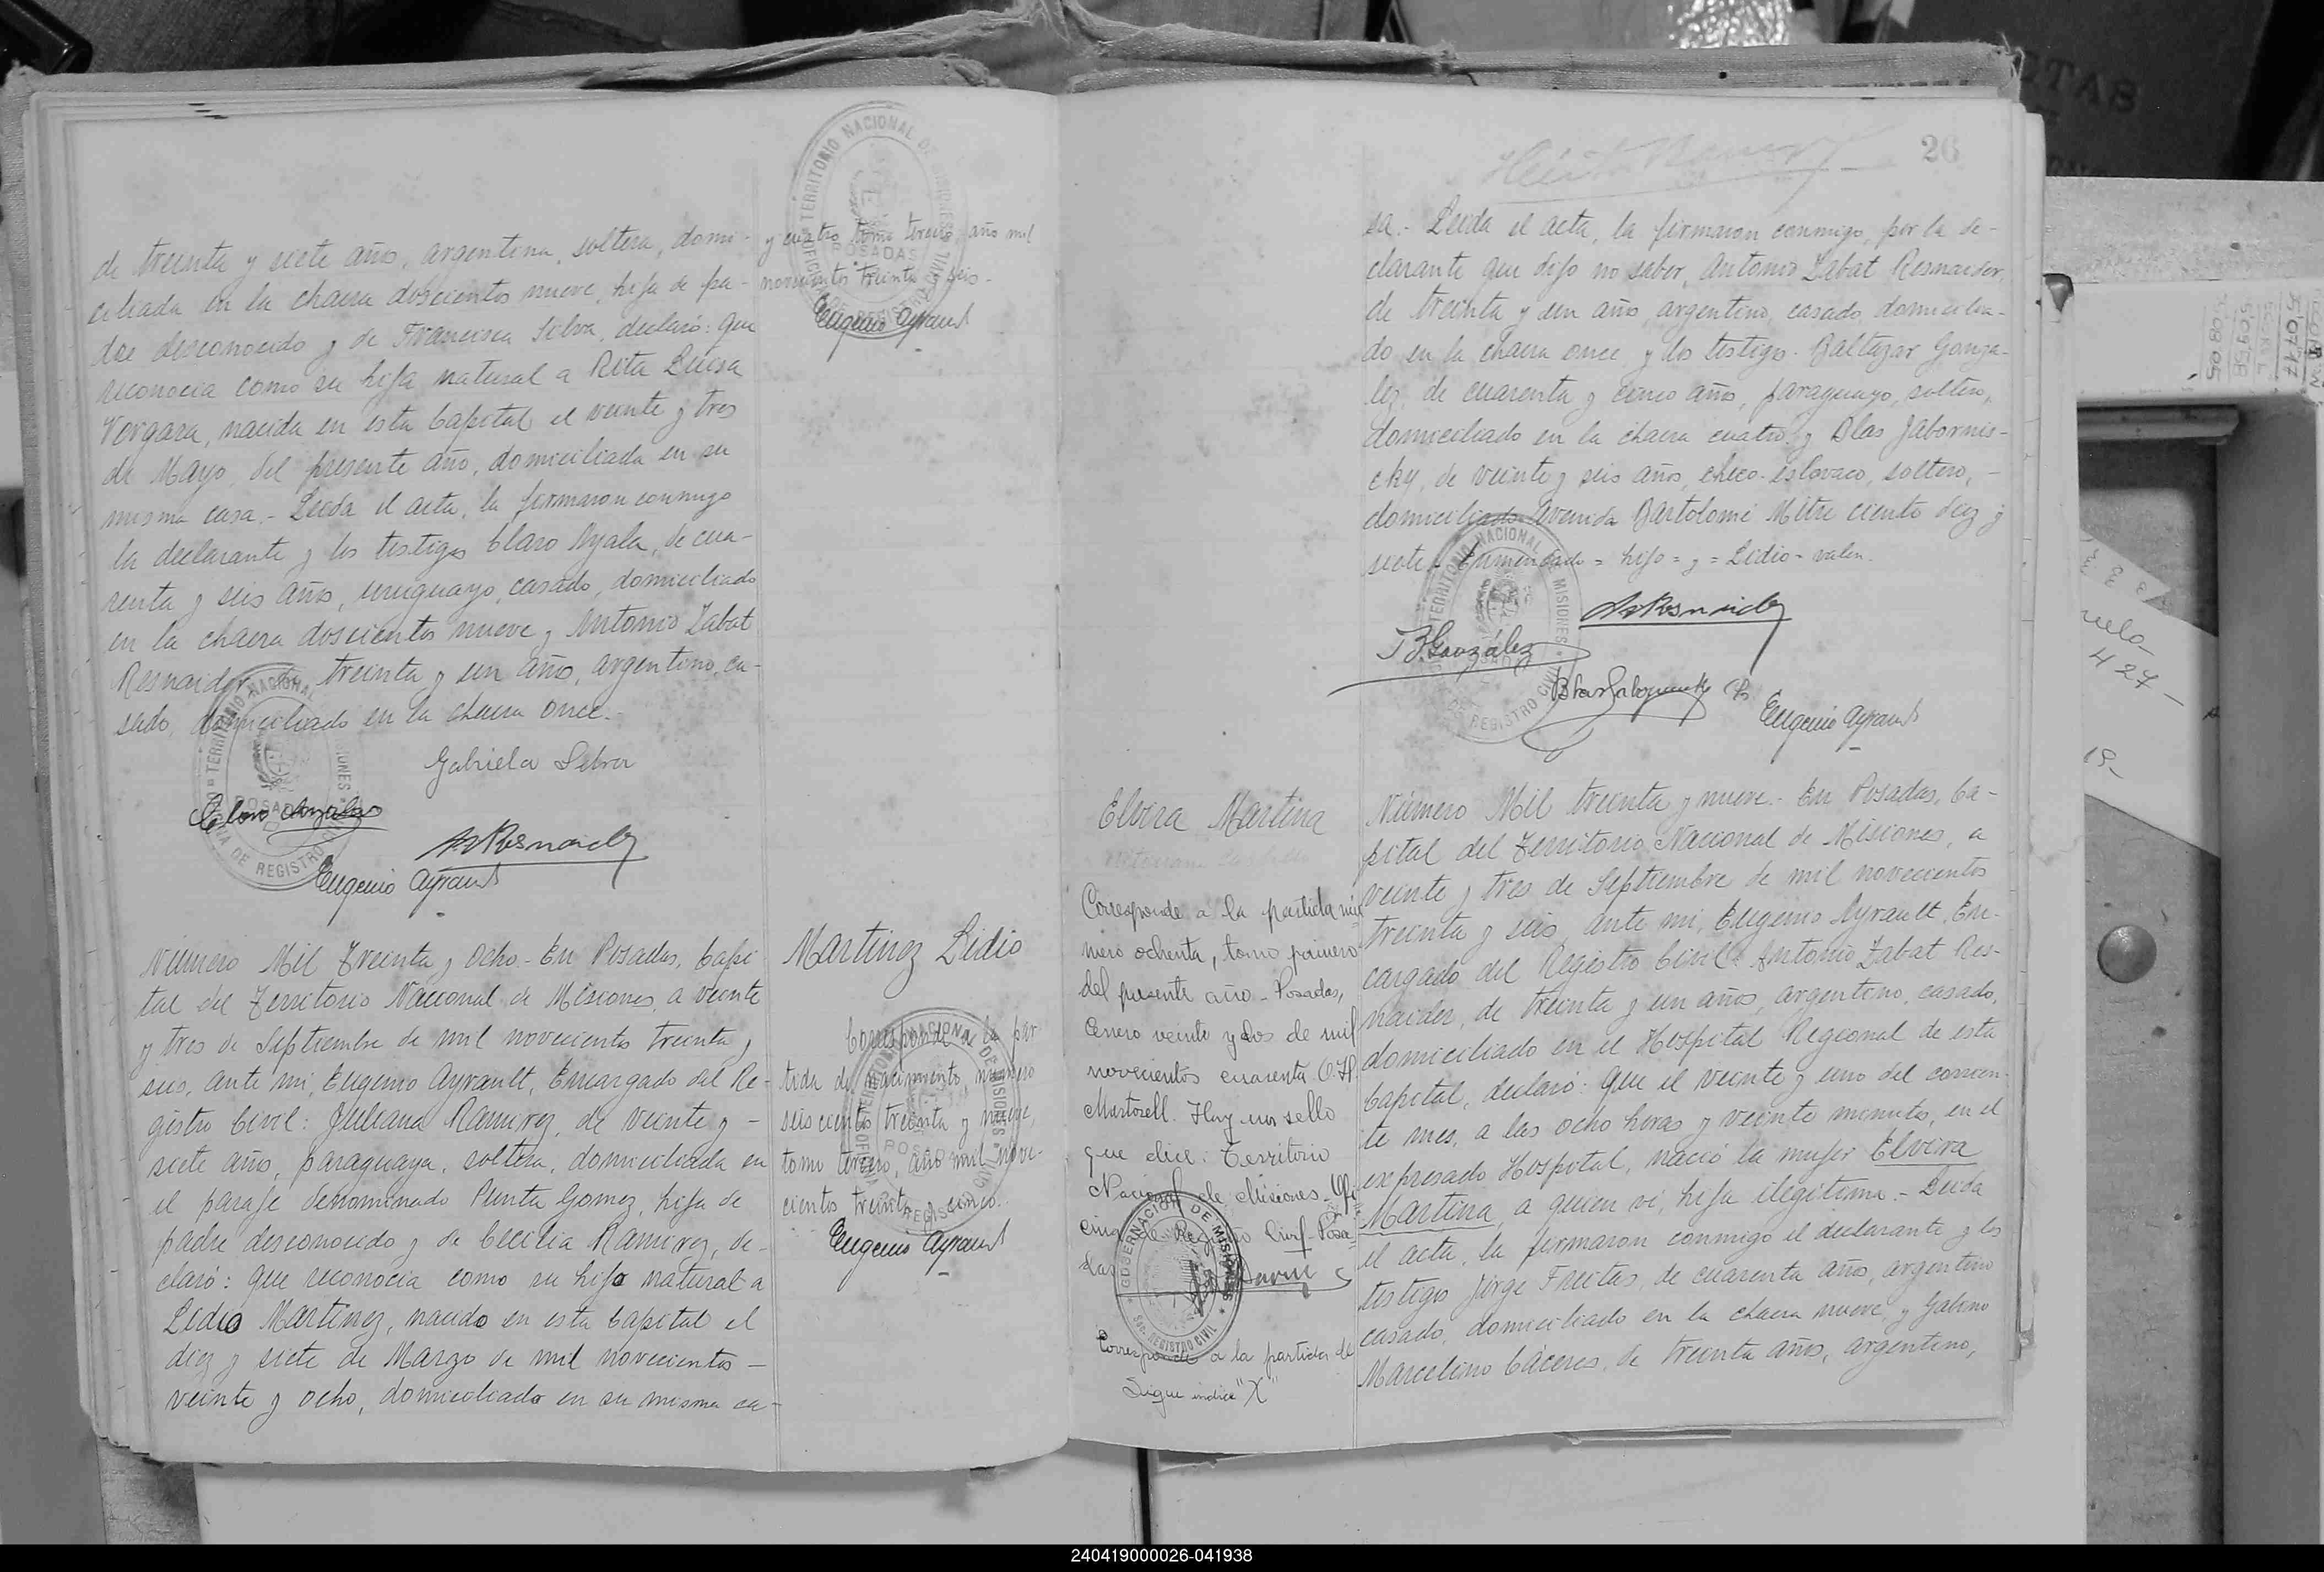 de treinta y siete años, argentina, soltera, domi-
ciliada en la chacra doscientos nueve, hija de pa-
dre desconocido y de Francisca Silva, declaró: que
reconocia como su hija natural a Rita Luisa
Vergara, nacida en esta Capital el veinte y tres
de Mayo del presente año, domiciliada en su
misma casa.- Leida el acta, la firmaron conmigo
la declarante y los testigos Claro Ayala, de cua-
renta y seis años, uruguayo, casado, domiciliado
en la chacra doscientos nueve y Antonio Zabat
Resnaider, de treinta y un años, argentino, ca-
sado, domiciliado en la chacra once.-
Gabriela Silva
Claro Ayala
Eugenio Ayrault
y cuatro, tomo tercero, año mil
novecientos treinta y seis.-
Eugenio Ayrault
TERRITORIO NACIONAL DE MISIONES
OFICINA DE REGISTRO CIVIL
POSADAS
Número Mil Treinta y Ocho.- En Posadas, Capi
tal del Territorio Nacional de Misiones, a veinte
y tres de Septiembre de mil novecientos treinta y
seis, ante mi, Eugenio Ayrault, Encargado del Re-
gistro Civil: Juliana Ramirez, de veinte y -
siete años, paraguaya, soltera, domiciliada en
el paraje denominado Punta Gomez, hija de
padre desconocido y de Cecilia Ramirez, de-
claró: que reconocia como su hijo natural a
Lidio Martinez, nacido en esta Capital el
diez y siete de Marzo de mil novecientos -
veinte y ocho, domiciliado en su misma ca-
Martinez Lidio
Corresponde a la par
tida de nacimiento número
seiscientos treinta y nueve,
tomo tercero, año mil nove-
cientos treinta y cinco.
Eugenio Ayrault
26
sa.- Leida el acta, la firmaron conmigo, por la de-
clarante que dijo no saber, Antonio Zabat Resnaider,
de treinta y un años, argentino, casado, domicilia-
do en la chacra once y los testigos Baltazar Gonza-
lez, de cuarenta y cinco años, paraguayo, soltero,
domiciliado en la chacra cuatro y Blas Jabornis-
cky, de veinte y seis años, checo-eslovaco, soltero, -
domiciliado Avenida Bartolomé Mitre ciento diez y
siete.- Enmendado = hijo = y = Lidio - valen.
B González
Eugenio Ayrault
Elvira Martina
Corresponde a la partida nú
mero ochenta, tomo primero
del presente año - Posadas,
Enero veinte y dos de mil
novecientos cuarenta O.H.
Martorell. Hay un sello
que dice: Territorio
Nacional de Misiones - Ofi
cina de Registro Civil - Posa
das
GOBERNACION DE MISIONES
REGISTRO CIVIL
Corresponde a la partida de
Sigue indice "X"
Número Mil treinta y nueve.- En Posadas, Ca-
pital del Territorio Nacional de Misiones, a
veinte y tres de Septiembre de mil novecientos
treinta y seis, ante mi, Eugenio Ayrault, En-
cargado del Registro Civil: Antonio Zabat Res-
naider, de treinta y un años, argentino, casado,
domiciliado en el Hospital Regional de esta
Capital, declaró: que el veinte y uno del corrien-
te mes, a las ocho horas y veinte minutos, en el
expresado Hospital, nació la mujer Elvira
Martina, a quien vi, hija ilegítima.- Leida
el acta, la firmaron conmigo el declarante y los
testigos Jorge Freitas, de cuarenta años, argentino
casado, domiciliado en la chacra nueve, y Gabino
Marcelino Cáceres, de treinta años, argentino,
240419000026-041938